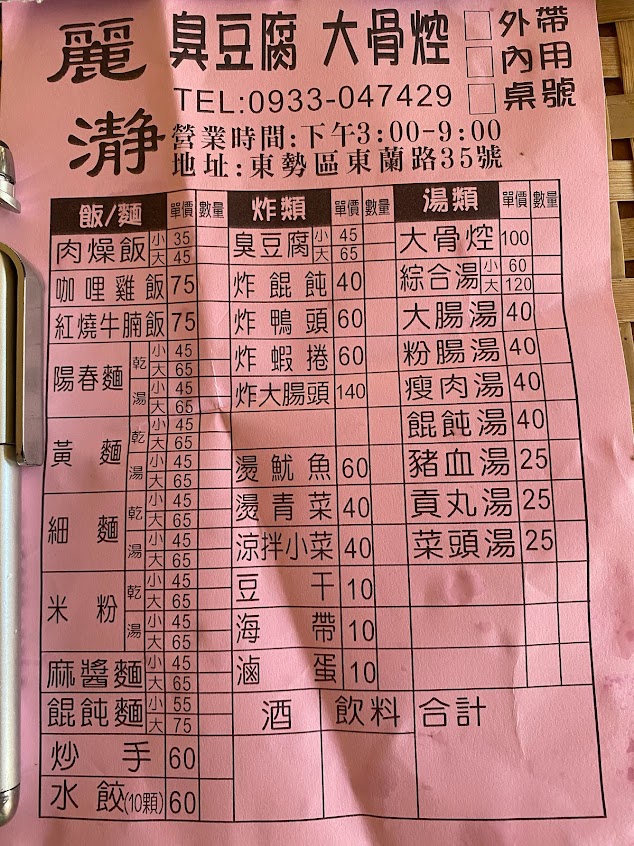 麗瀞
臭豆腐 大骨焢
□外帶
□內用
□桌號
TEL:0933-047429
營業時間:下午3:00-9:00
地址:東勢區東蘭路35號
飯/麵 單價 數量
肉燥飯 小 35
大 45
咖哩雞飯 75
紅燒牛腩飯 75
陽春麵 乾 小 45
大 65
湯 小 45
大 65
黃麵 乾 小 45
大 65
湯 小 45
大 65
細麵 乾 小 45
大 65
湯 小 45
大 65
米粉 乾 小 45
大 65
湯 小 45
大 65
麻醬麵 小 45
大 65
餛飩麵 小 55
大 75
炒手 60
水餃(10顆) 60
炸類 單價 數量
臭豆腐 小 45
大 65
炸餛飩 40
炸鴨頭 60
炸蝦捲 60
炸大腸頭 140
燙魷魚 60
燙青菜 40
涼拌小菜 40
豆干 10
海帶 10
滷蛋 10
湯類 單價 數量
大骨焢 100
綜合湯 小 60
大 120
大腸湯 40
粉腸湯 40
瘦肉湯 40
餛飩湯 40
豬血湯 25
貢丸湯 25
菜頭湯 25
酒 飲料 合計